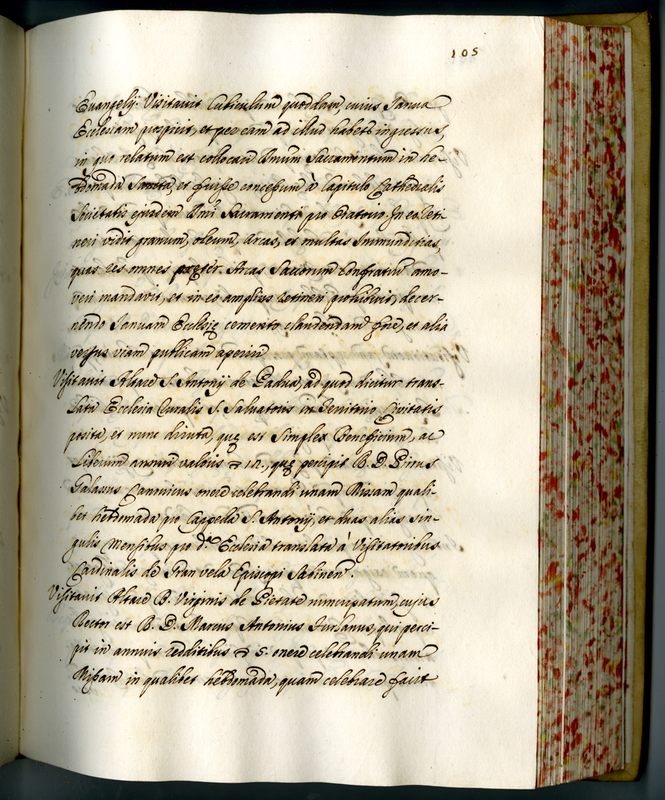 105
Euangelij. Visitauit Cubiculum quoddam, cuius Ianua
Ecclesiam prospicit, et per eam ad illud habetur ingressus,
in quo relatum est collocari Smum Sacramentum in he-
bdomada Sancta, et fuisse concessum à Capitulo Cathedralis
Societatis eiusdem Smi Sacramenti pro Oratorio. In eo reti-
neri vidit granum, oleum, Arcas, et multas Immunditias,
quas res omnes praeter Arcas Saccorum Confratrum amo-
veri mandavit, et in eo amplius retineri prohibuit, decer-
nendo Ianuam Ecclesię cemento claudendam fore, et alia
versus viam publicam aperiri
Visitauit Altare S. Antonij de Padua, ad quod dicitur trans-
lata Ecclesia Curalis S. Saluatoris in Civitatis
posita, et nunc diruta, quę est simplex Beneficium, ac
Liberum annui valoris 10., quę percipit R. D. Pirrus
Galassus Canonicus onere celebrandi unam Missam quali-
bet hebdomada pro Cappella S. Antonij, et duas alias sin-
gulis mensibus pro d.ª Ecclesia translata à Visitatoribus
Cardinalis de Gran vela Episcopi Sabinen.
Visitauit Altare B. Virginis de Pietate nuncupatum, cuius
Rector est R. D. Marcus Antonius Furlanus, qui perci-
pit in annuis redditibus 5. onere celebrandi unam
Missam in qualibet hebdomada, quam celebrare facit